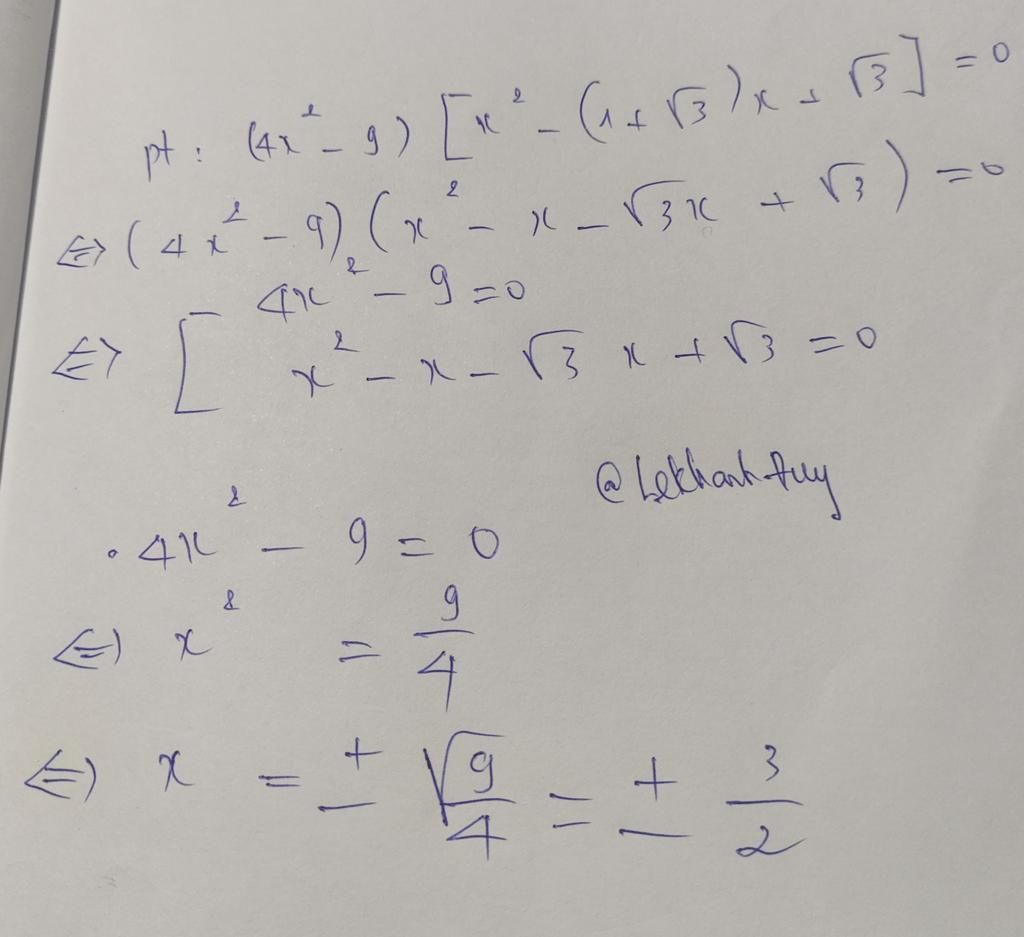 pt : (4x² - 9) [x² - (1 + √3)x + √3] = 0
⇔ (4x² - 9) (x² - x - √3x + √3) = 0
4x² - 9 = 0
⇔ [ x² - x - √3 x + √3 = 0
@Lekhanh
• 4x² - 9 = 0
⇔ x² = 9/4
⇔ x = ± √9/4 = ± 3/2